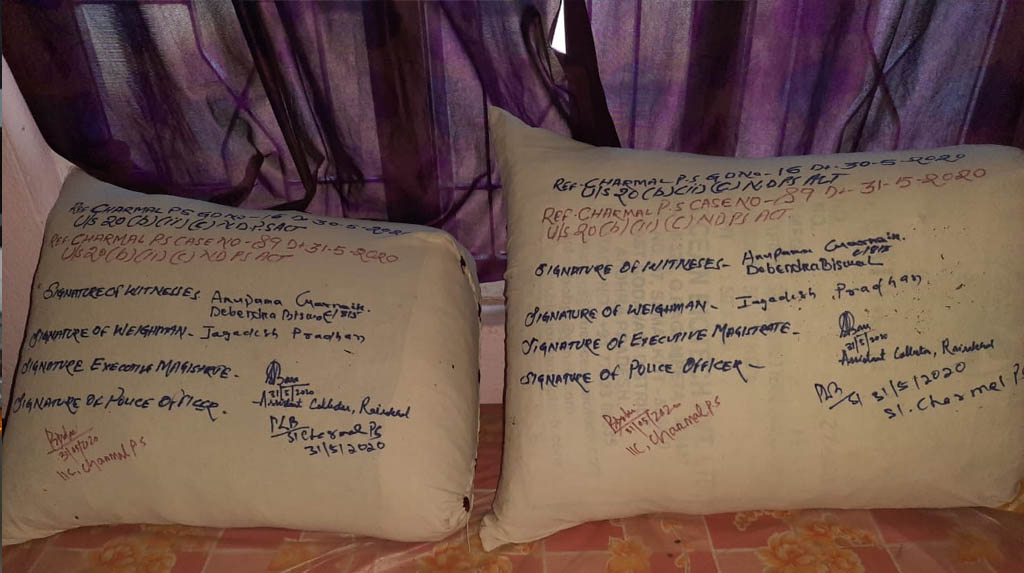 REF-CHARMAL P.S G.D NO-16 Dt-30-5-2020
U/s 20(b)(ii)(C) NDPS ACT
REF-CHARMAL P.S CASE NO-89 Dt-31-5-2020
U/s 20(b)(ii)(C) NDPS ACT
SIGNATURE OF WITNESSES Anupama
Debendra Biswal
SIGNATURE OF WEIGHMAN- Jagadish Pradhan
SIGNATURE EXECUTIVE MAGISTRATE-
31/5/2020
Assistant Collector, Rairakhol
SIGNATURE OF POLICE OFFICER.
SI Charmal PS
31/5/2020
31/05/2020
IIC, Charmal PS
REF-CHARMAL P.S G.D NO-16 Dt-30-5-2020
U/s 20(b)(ii)(C) NDPS ACT
REF-CHARMAL P.S CASE NO-89 Dt-31-5-2020
U/s 20(b)(ii)(C) NDPS ACT.
SIGNATURE OF WITNESES- Anupama
Debendra Biswal
SIGNATURE OF WEIGHMAN- Jagadish Pradhan
SIGNATURE OF EXECUTIVE MAGISTRATE-
31/5/2020
Assistant Collector, Rairakhol
SIGNATURE OF POLICE OFFICER-
31/5/2020
SI. Charmal PS
31/05/2020
IIC, Charmal PS